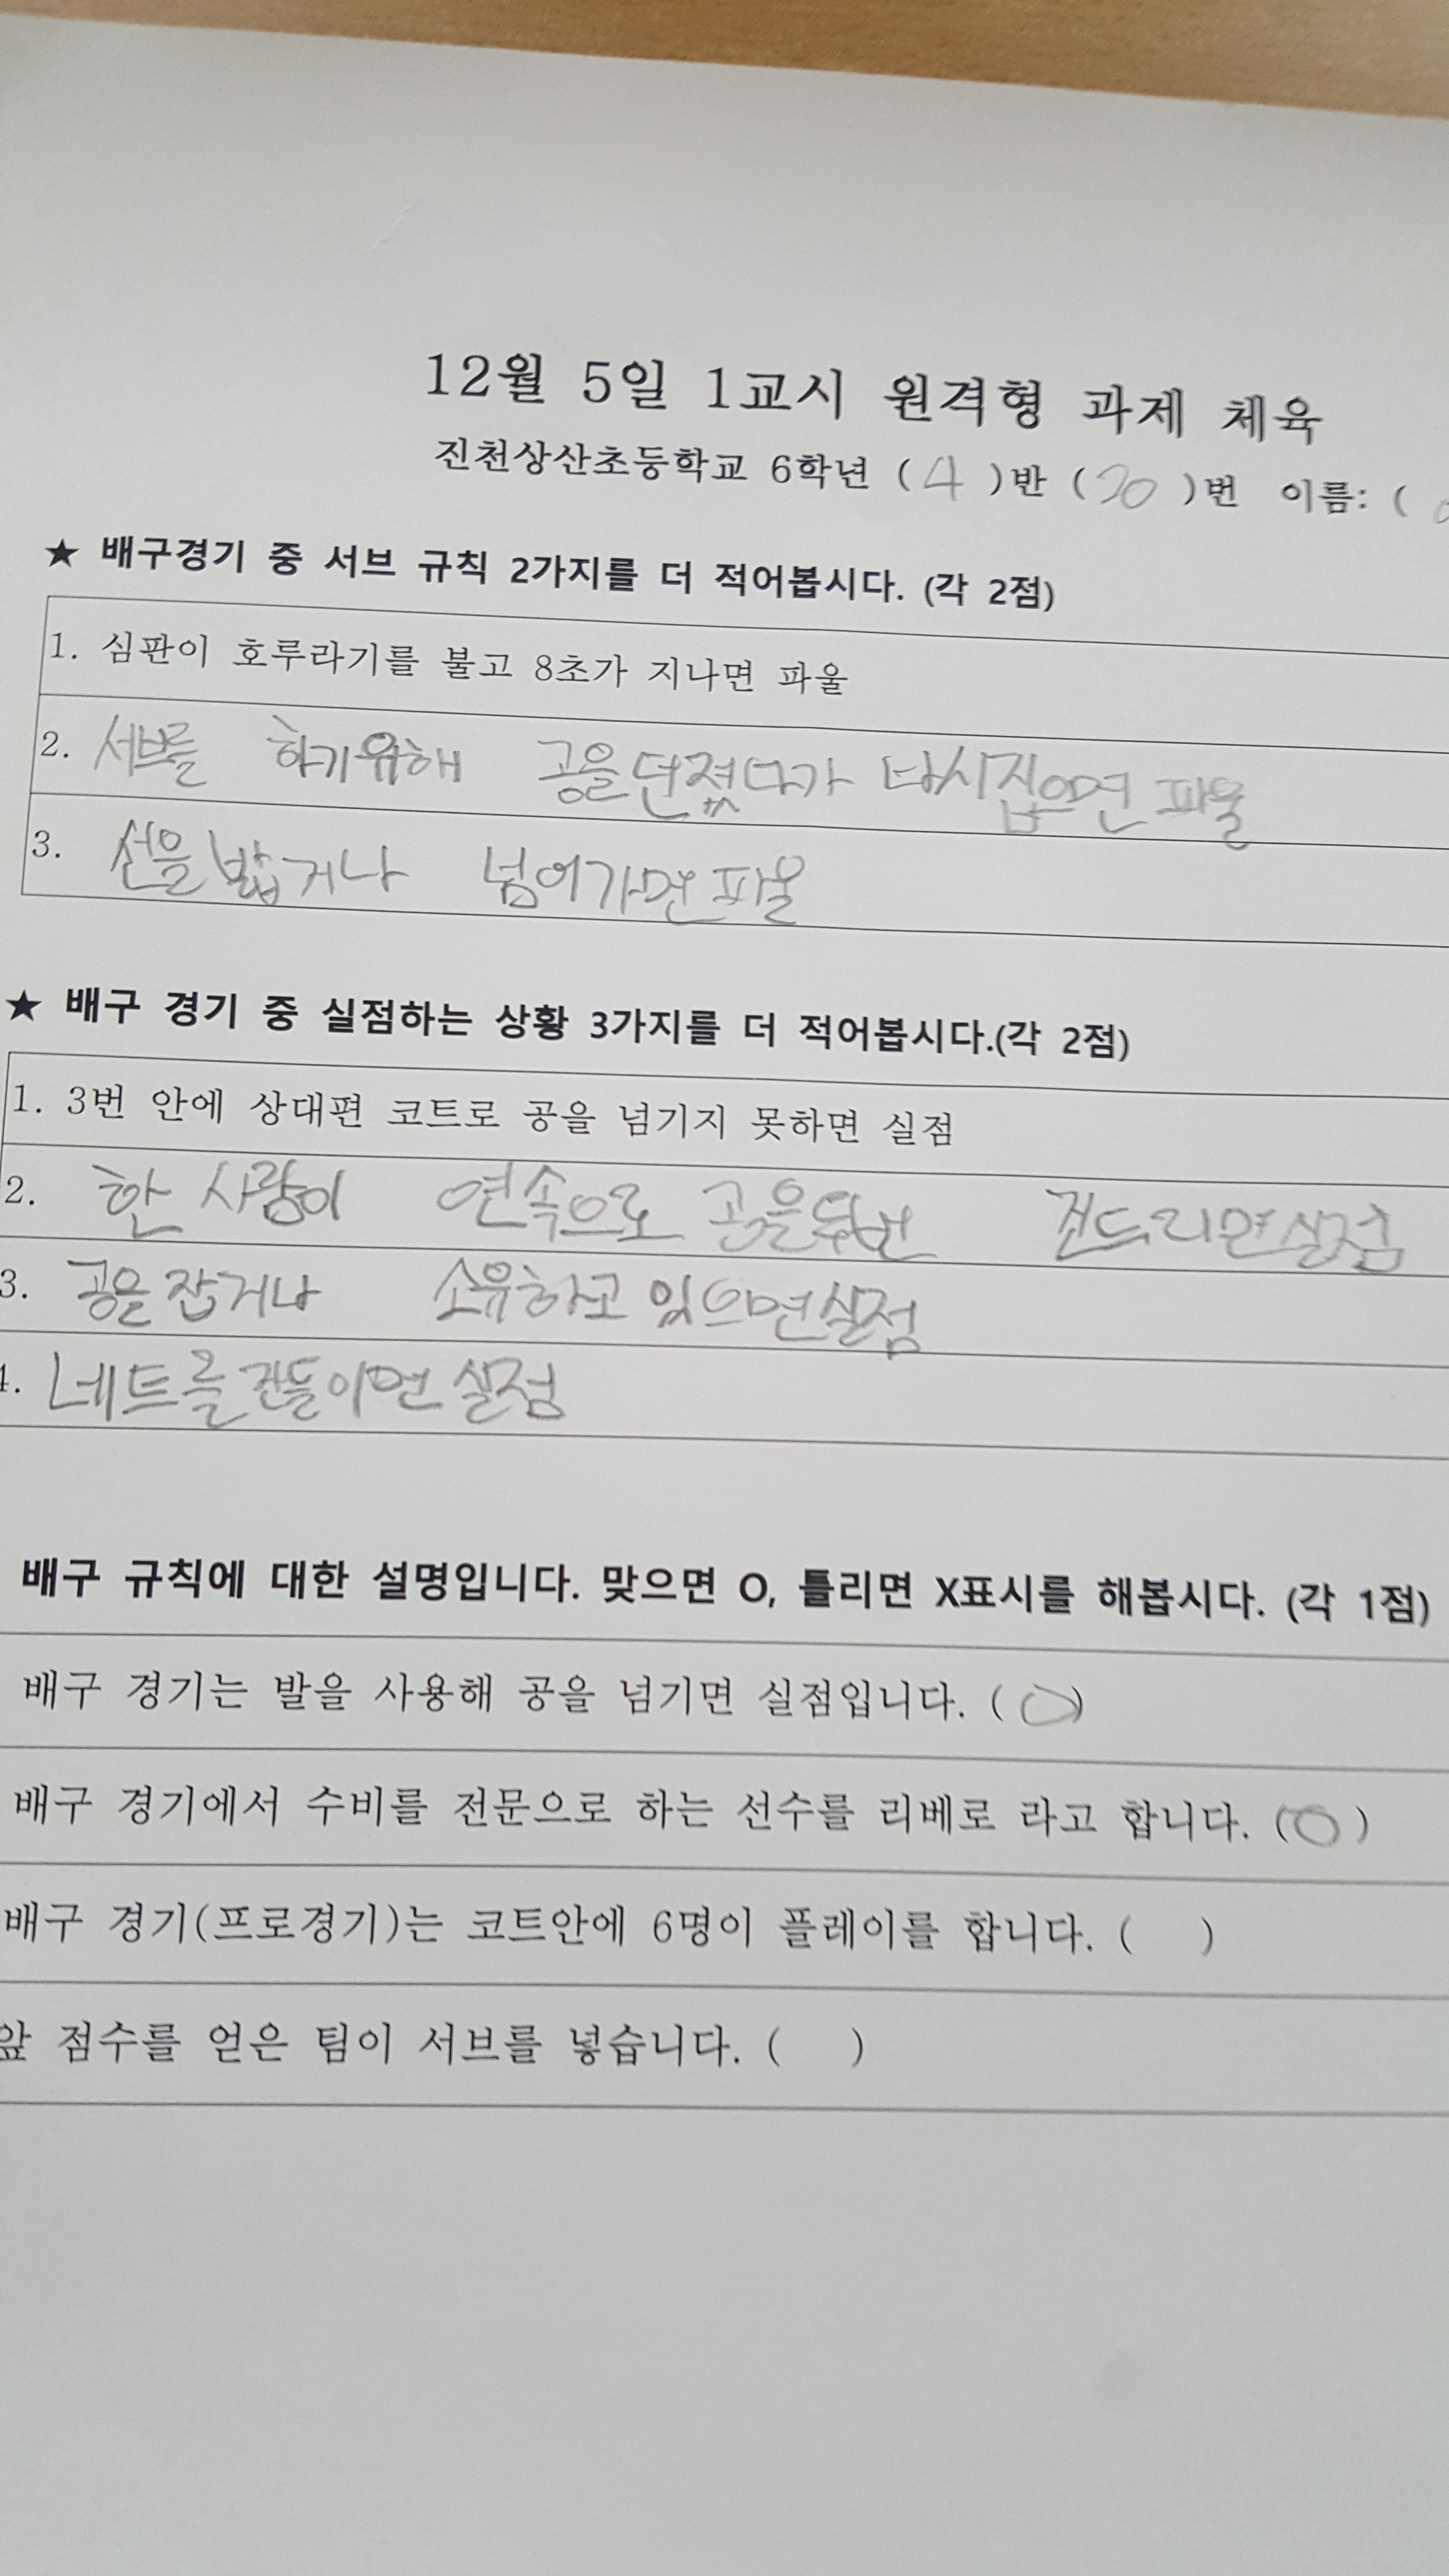 12월 5일 1교시 원격형 과제 체육
진천상산초등학교 6학년 ( 4 )반 ( 20 )번 이름: (
★ 배구경기 중 서브 규칙 2가지를 더 적어봅시다. (각 2점)
1. 심판이 호루라기를 불고 8초가 지나면 파울
2. 서브를 하기위해 공을 던졌다가 다시 집으면 파울
3. 선을 밟거나 넘어가면 파울
★ 배구 경기 중 실점하는 상황 3가지를 더 적어봅시다.(각 2점)
1. 3번 안에 상대편 코트로 공을 넘기지 못하면 실점
2. 한 사람이 연속으로 공을 두번 건드리면 실점
3. 공을 잡거나 소유하고 있으면 실점
4. 네트를 건들이면 실점
배구 규칙에 대한 설명입니다. 맞으면 O, 틀리면 X표시를 해봅시다. (각 1점)
배구 경기는 발을 사용해 공을 넘기면 실점입니다. ( O )
배구 경기에서 수비를 전문으로 하는 선수를 리베로 라고 합니다. ( O )
배구 경기(프로경기)는 코트안에 6명이 플레이를 합니다. ( )
앞 점수를 얻은 팀이 서브를 넣습니다. ( )